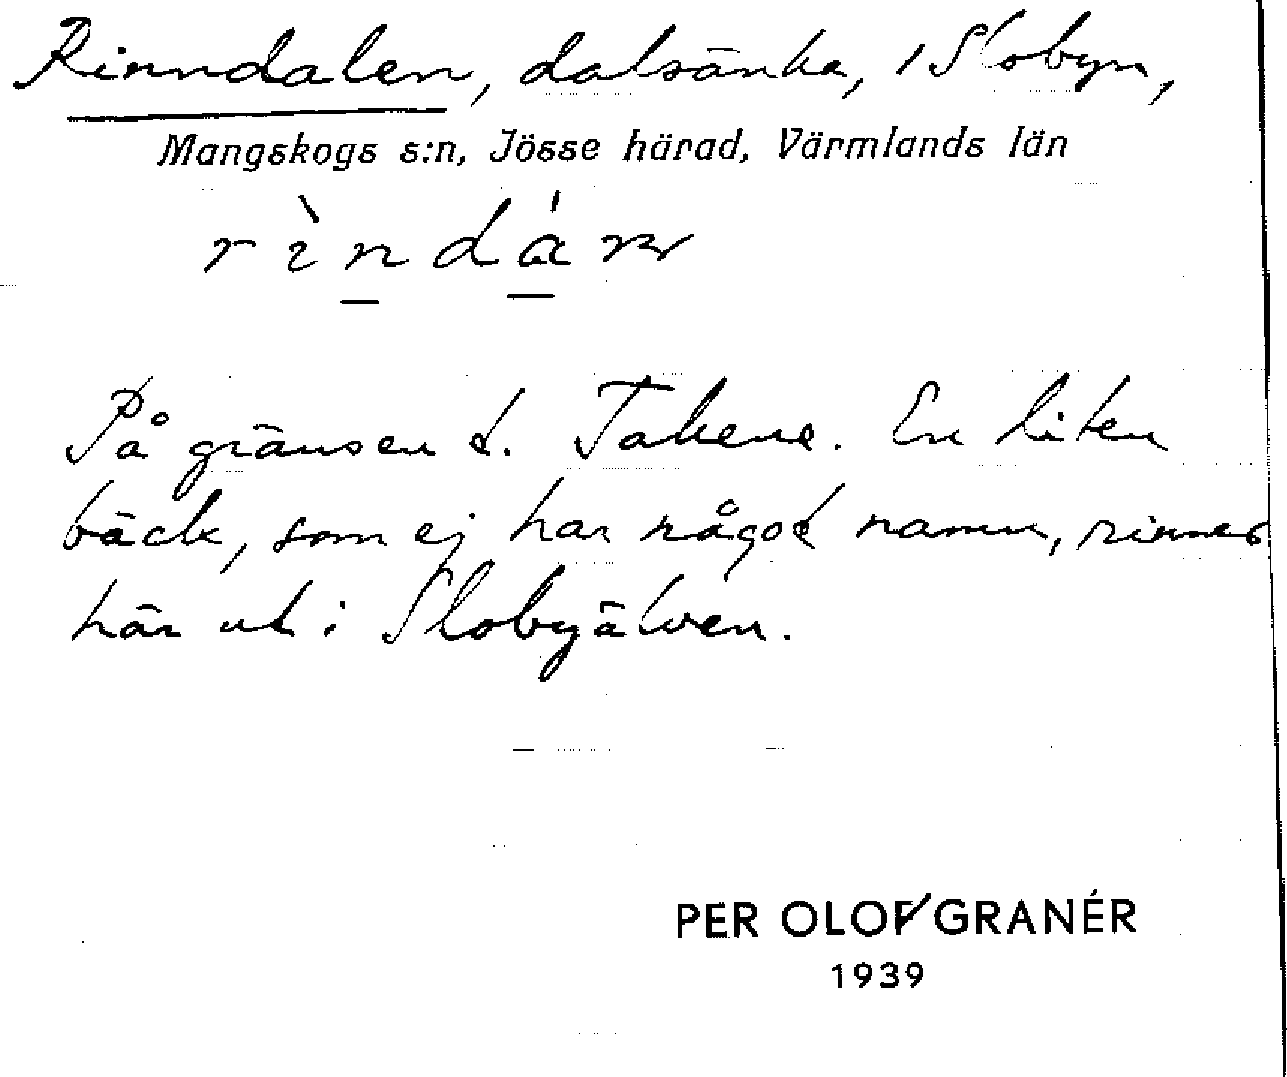 Rinndalen, dalsänka, i Slobyn,
Mangskogs s:n, Jösse härad, Värmlands län
rìndár
På gränsen t. Takene. En liten
bäck, som ej har något namn, rinner
här ut i Slobyälven.
PER OLOF GRANÉR
1939